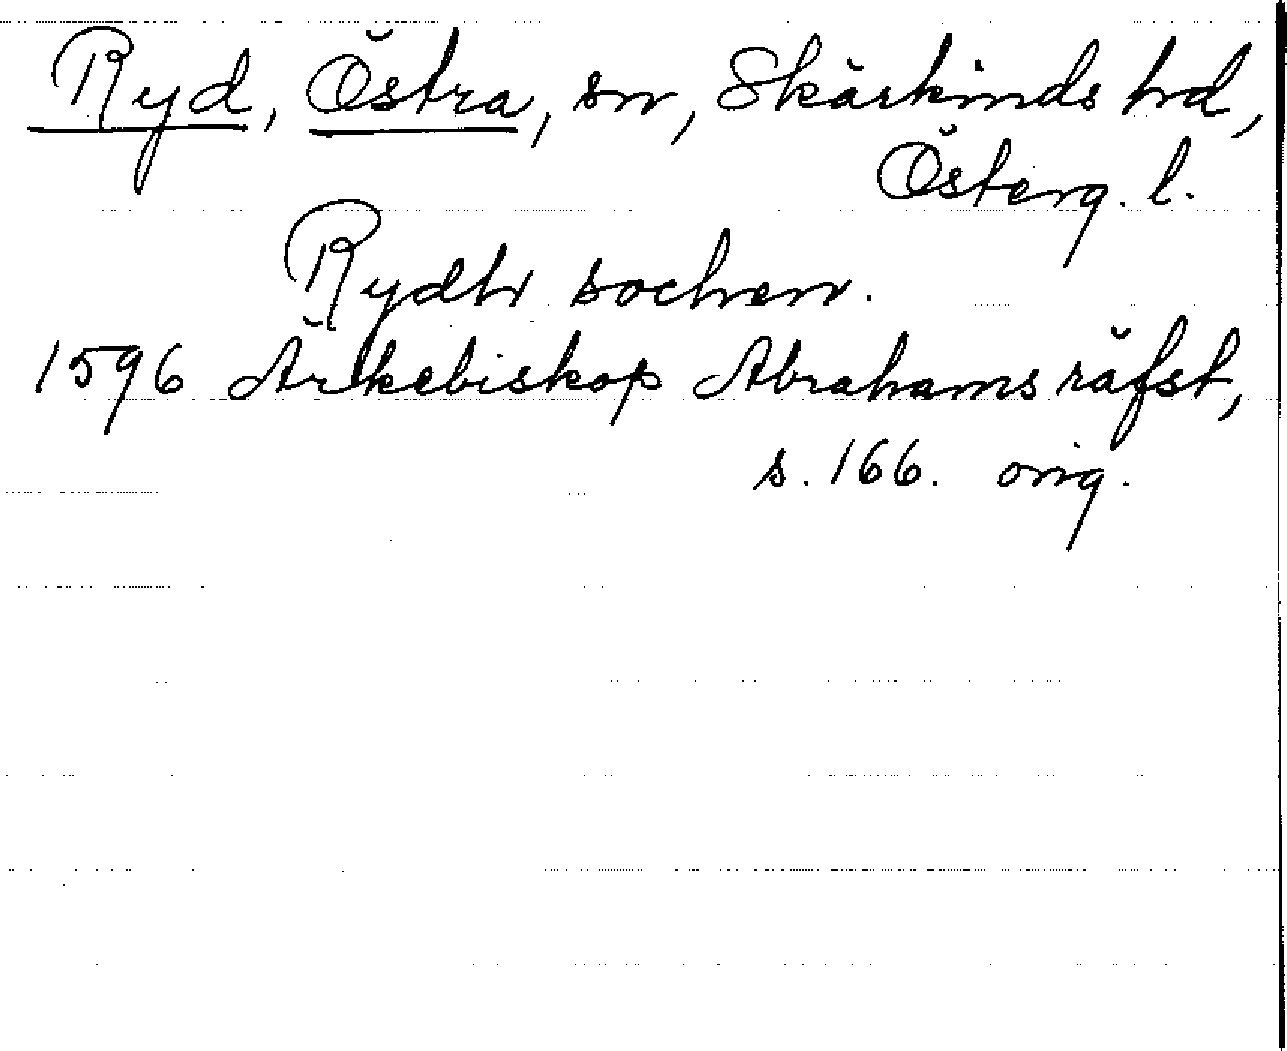 Ryd, Östra, sn, Skärkinds hd,
Österg. l.
Rydh sochen.
1596 Ärkebiskop Abrahams räfst,
s. 166. orig.